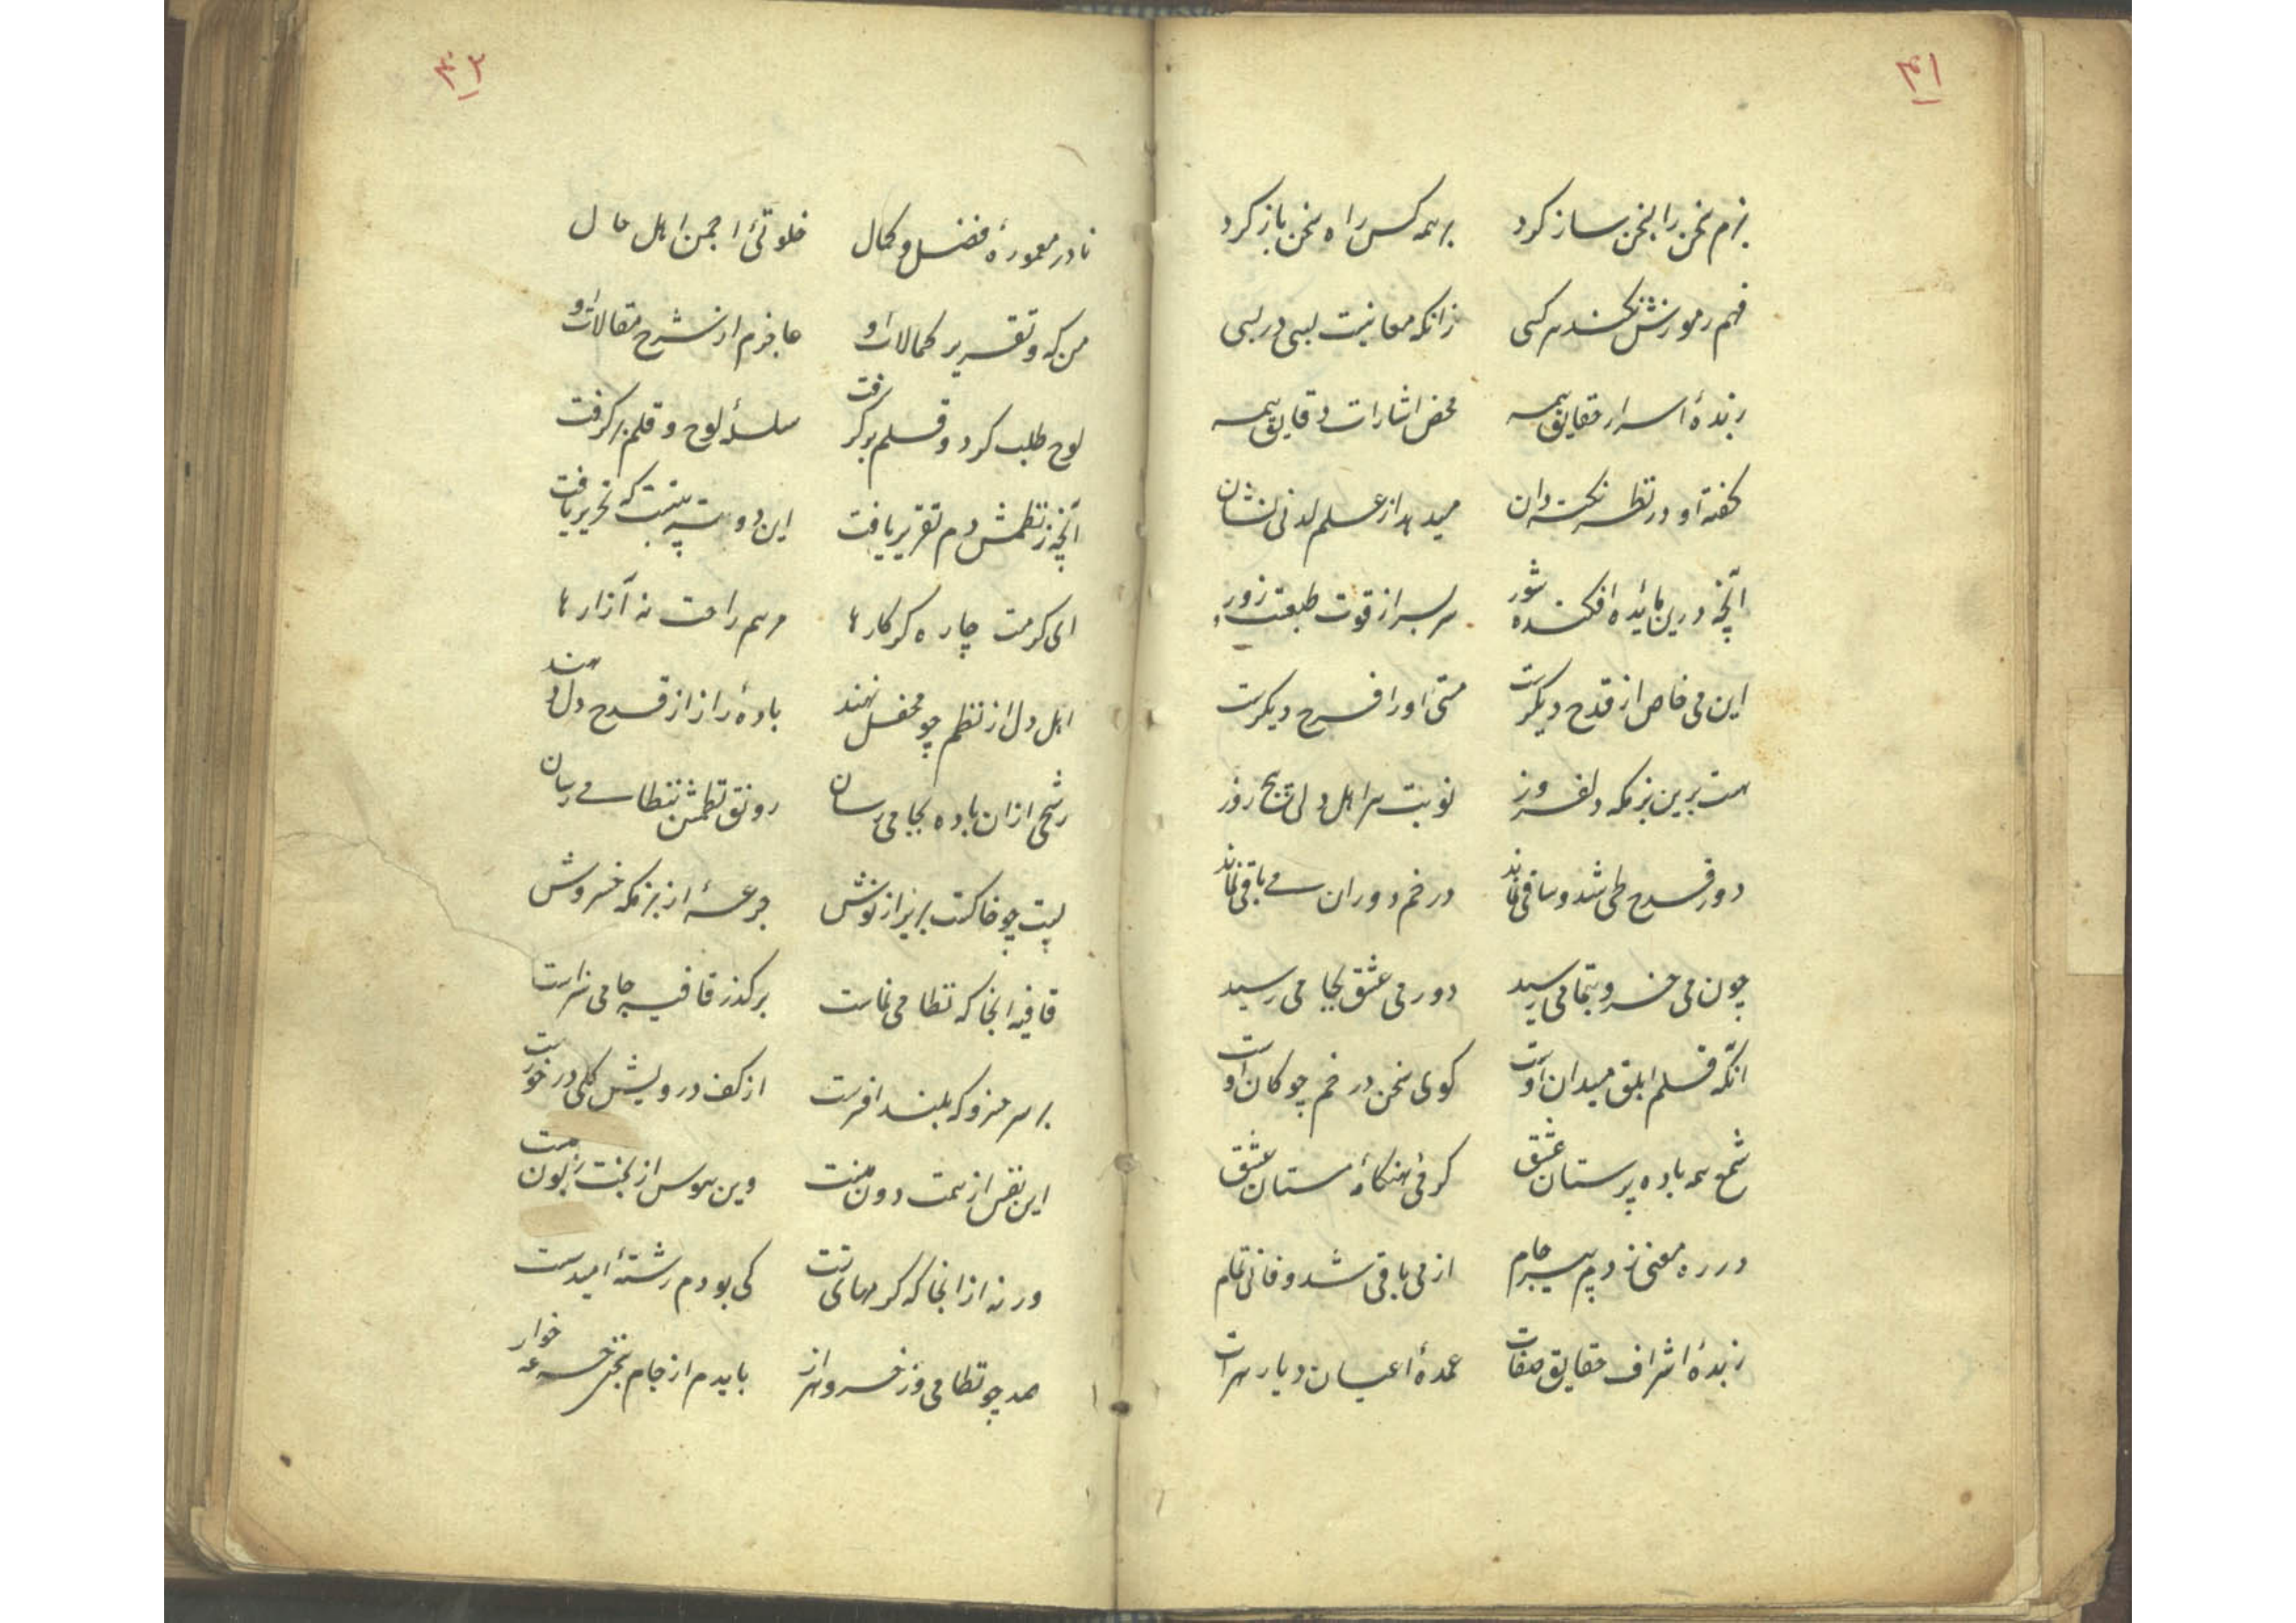 ۴۱
بزم سخن را بسخن ساز کرد بر همه کس راه سخن باز کرد
فهم رموزش نکند هر کسی زانکه معانیست بسی در بسی
زبدهٔ اسرار حقایق همه محض اشارات دقایق همه
گفتهٔ او در نظر نکته دان میدهد از علم لدنی نشان
آنچه درین مایده افکنده شور سر بسر از قوت طبعت زور
این می خاص از قدح دیگرست مستی او را فرح دیگرست
هست برین بزمگه دلفروز نوبت هر اهل دلی پنج روز
دور قدح طی شد و ساقی نماند در خم دوران می باقی نماند
چون می خسرو بتمامی رسید دور می عشق بجامی رسید
آنکه قلم ابلق میدان اوست گوی سخن در خم چوگان اوست
شمع همه باده پرستان عشق گرمی هنگامهٔ مستان عشق
در ره معنی زده پیر جام از می باقی شد و فانی تمام
زبدهٔ اشراف حقایق صفات عمدهٔ اعیان دیار هرات
۴۲
نادر معمورهٔ فضل و کمال خلوتی انجمن اهل حال
من که و تقریر کمالات او عاجزم از شرح مقالات او
لوح طلب کرد و قلم برگرفت سلسلهٔ لوح و قلم برگرفت
آنچه ز نظمش دم تقریر یافت این دو سه بیتست که تحریر یافت
ای کرمت چاره گر کارها مرهم راحت نه آزارها
اهل دل از نظم چو محفل نهند بادهٔ راز از قدح دل دهند
رشحی ازان باده بجامی رسان رونق نظمش بنظامی رسان
پست چو خاکست بریز از نوش جرعهٔ از بزمگه خسروش
قافیه آنجا که نظامی نماست بر گذر قافیه جامی سزاست
بر سر خسرو که بلند افسرست از کف درویش گلی در خورست
این نفس از همت دون منست وین هوس از بخت زبون منست
ورنه از آنجا که کرمهای تست کی بودم رشتهٔ امید سست
صد چو نظامی و ز خسرو هزار بایدم از جام سخن جرعه خوار